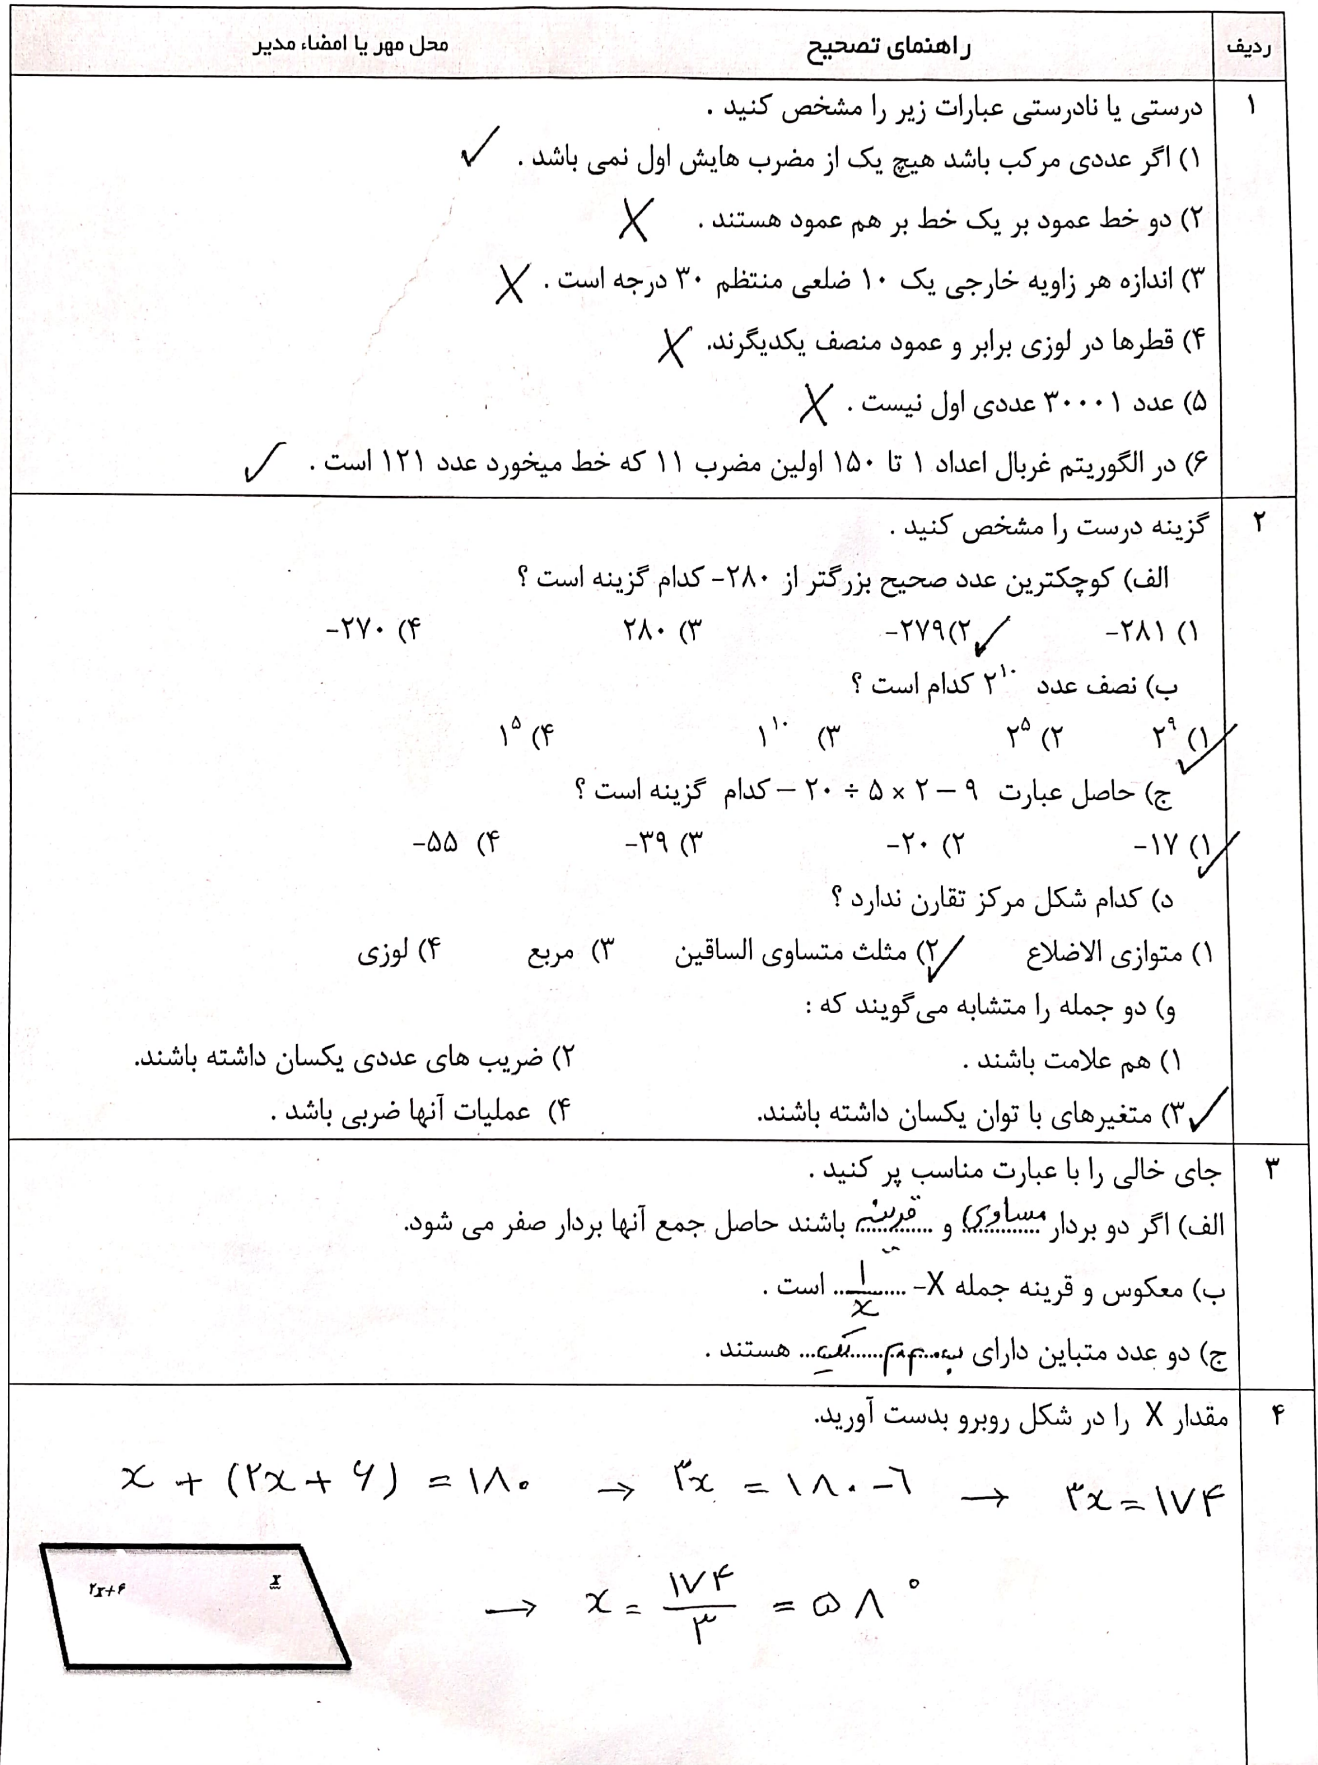 ردیف راهنمای تصحیح محل مهر یا امضاء مدیر
۱ درستی یا نادرستی عبارات زیر را مشخص کنید .
۱) اگر عددی مرکب باشد هیچ یک از مضرب هایش اول نمی باشد . ✓
۲) دو خط عمود بر یک خط بر هم عمود هستند . X
۳) اندازه هر زاویه خارجی یک ۱۰ ضلعی منتظم ۳۰ درجه است . X
۴) قطرها در لوزی برابر و عمود منصف یکدیگرند. X
۵) عدد ۳۰۰۰۱ عددی اول نیست . X
۶) در الگوریتم غربال اعداد ۱ تا ۱۵۰ اولین مضرب ۱۱ که خط میخورد عدد ۱۲۱ است . ✓
۲ گزینه درست را مشخص کنید .
الف) کوچکترین عدد صحیح بزرگتر از ۲۸۰- کدام گزینه است ؟
۱) ۲۸۱- ✓ ۲) ۲۷۹- ۳) ۲۸۰ ۴) ۲۷۰-
ب) نصف عدد ۲^۱۰ کدام است ؟
✓ ۱) ۲^۹ ۲) ۲^۵ ۳) ۱^۱۰ ۴) ۱^۵
ج) حاصل عبارت ۹ – ۲ × ۵ ÷ ۲۰ – کدام گزینه است ؟
✓ ۱) ۱۷- ۲) ۲۰- ۳) ۳۹- ۴) ۵۵-
د) کدام شکل مرکز تقارن ندارد ؟
۱) متوازی الاضلاع ✓ ۲) مثلث متساوی الساقین ۳) مربع ۴) لوزی
و) دو جمله را متشابه می‌گویند که :
۱) هم علامت باشند . ۲) ضریب های عددی یکسان داشته باشند.
✓ ۳) متغیرهای با توان یکسان داشته باشند. ۴) عملیات آنها ضربی باشد .
۳ جای خالی را با عبارت مناسب پر کنید .
الف) اگر دو بردار مساوی و قرینه باشند حاصل جمع آنها بردار صفر می شود.
ب) معکوس و قرینه جمله X- ...۱/x... است .
ج) دو عدد متباین دارای ب.م.م یک هستند .
۴ مقدار X را در شکل روبرو بدست آورید.
x + (۲x + ۶) = ۱۸۰ → ۳x = ۱۸۰ - ۶ → ۳x = ۱۷۴
۲x+۶ x
→ x = ۱۷۴/۳ = ۵۸°